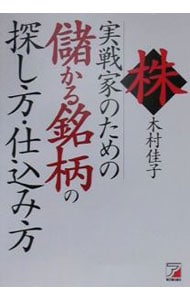 株
木村佳子
実戦家のための
儲かる銘柄の
探し方・仕込み方